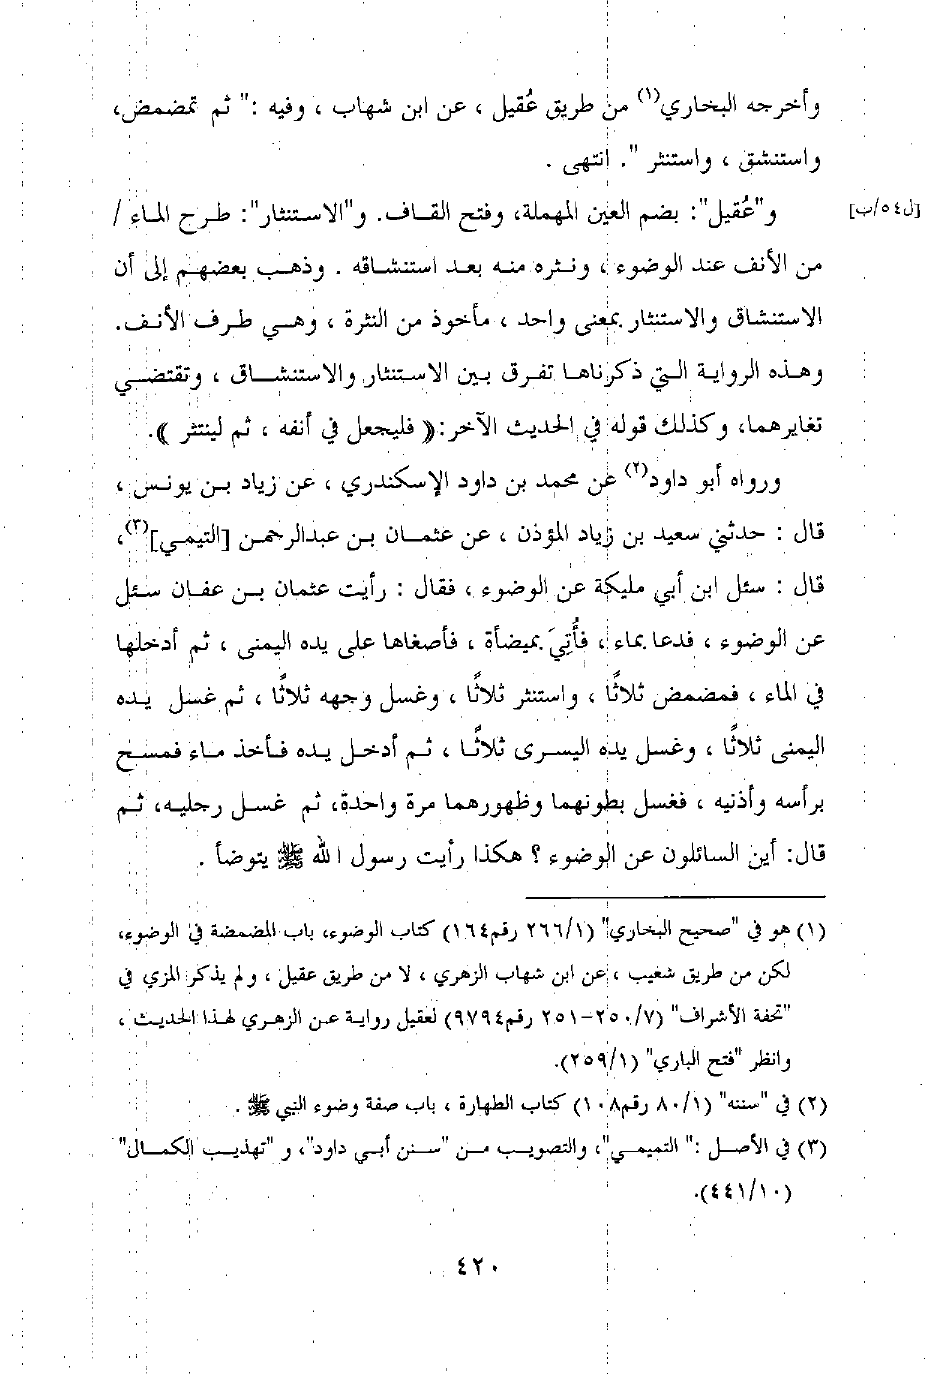 وأخرجه البخاري(١) من طريق عُقيل ، عن ابن شهاب ، وفيه :" ثم تمضمض،
واستنشق ، واستنثر ". انتهى .
و"عُقيل": بضم العين المهملة، وفتح القـاف. و"الاسـتنثار": طـرح المـاء / [ل٥٤/ب]
من الأنف عند الوضوء ، ونـثره منـه بعـد استنشـاقه . وذهـب بعضهـم إلى أن
الاستنشاق والاستنثار بمعنى واحد ، مأخوذ من النثرة ، وهـي طـرف الأنـف.
وهـذه الروايـة الـتي ذكرناهـا تفـرق بـين الاسـتنثار والاستنشـاق ، وتقتضـي
تغايرهما، وكذلك قوله في الحديث الآخر:﴿ فليجعل في أنفه ، ثم لينتثر ﴾.
ورواه أبو داود(٢) عن محمد بن داود الإسكندري ، عن زياد بـن يونـس ،
قال : حدثني سعيد بن زياد المؤذن ، عن عثمـان بـن عبدالرحمـن [التيمـي](٣)،
قال : سئل ابن أبي مليكة عن الوضوء ، فقال : رأيت عثمان بـن عفـان سـئل
عن الوضوء ، فدعا بماء ، فأُتِيَ بميضأة ، فأصغاها على يده اليمنى ، ثم أدخلها
في الماء ، فمضمض ثلاثًا ، واستنثر ثلاثًا ، وغسل وجهه ثلاثًا ، ثم غسل يـده
اليمنى ثلاثًا ، وغسل يده اليسرى ثلاثًـا ، ثـم أدخـل يـده فـأخذ مـاء فمسـح
برأسه وأذنيه ، فغسل بطونهما وظهورهما مرة واحدة، ثم غسـل رجليـه، ثـم
قال: أين السائلون عن الوضوء ؟ هكذا رأيت رسول الله ﷺ يتوضأ .
(١) هو في "صحيح البخاري" (٢٦٦/١ رقم١٦٤) كتاب الوضوء، باب المضمضة في الوضوء،
لكن من طريق شعيب ، عن ابن شهاب الزهري ، لا من طريق عقيل ، ولم يذكر المزي في
"تحفة الأشراف" (٢٥٠/٧-٢٥١ رقم٩٧٩٤) لعقيل روايـة عـن الزهـري لهـذا الحديـث ،
وانظر "فتح الباري" (٢٥٩/١).
(٢) في "سننه" (٨٠/١ رقم١٠٨) كتاب الطهارة ، باب صفة وضوء النبي ﷺ .
(٣) في الأصـل :" التميمـي"، والتصويـب مـن "سـنن أبـي داود"، و "تهذيـب الكمـال"
(٤٤١/١٠).
٤٢٠